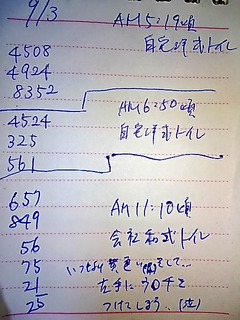 9/3
AM5:19頃
自宅洋式トイレ
4508
4924
8352
AM6:50頃
自宅洋式トイレ
4524
325
561
AM11:10頃
会社和式トイレ
657
849
56
75
21
25
いつもより黄色い
左手にウンチを
つけてしまう。(泣)